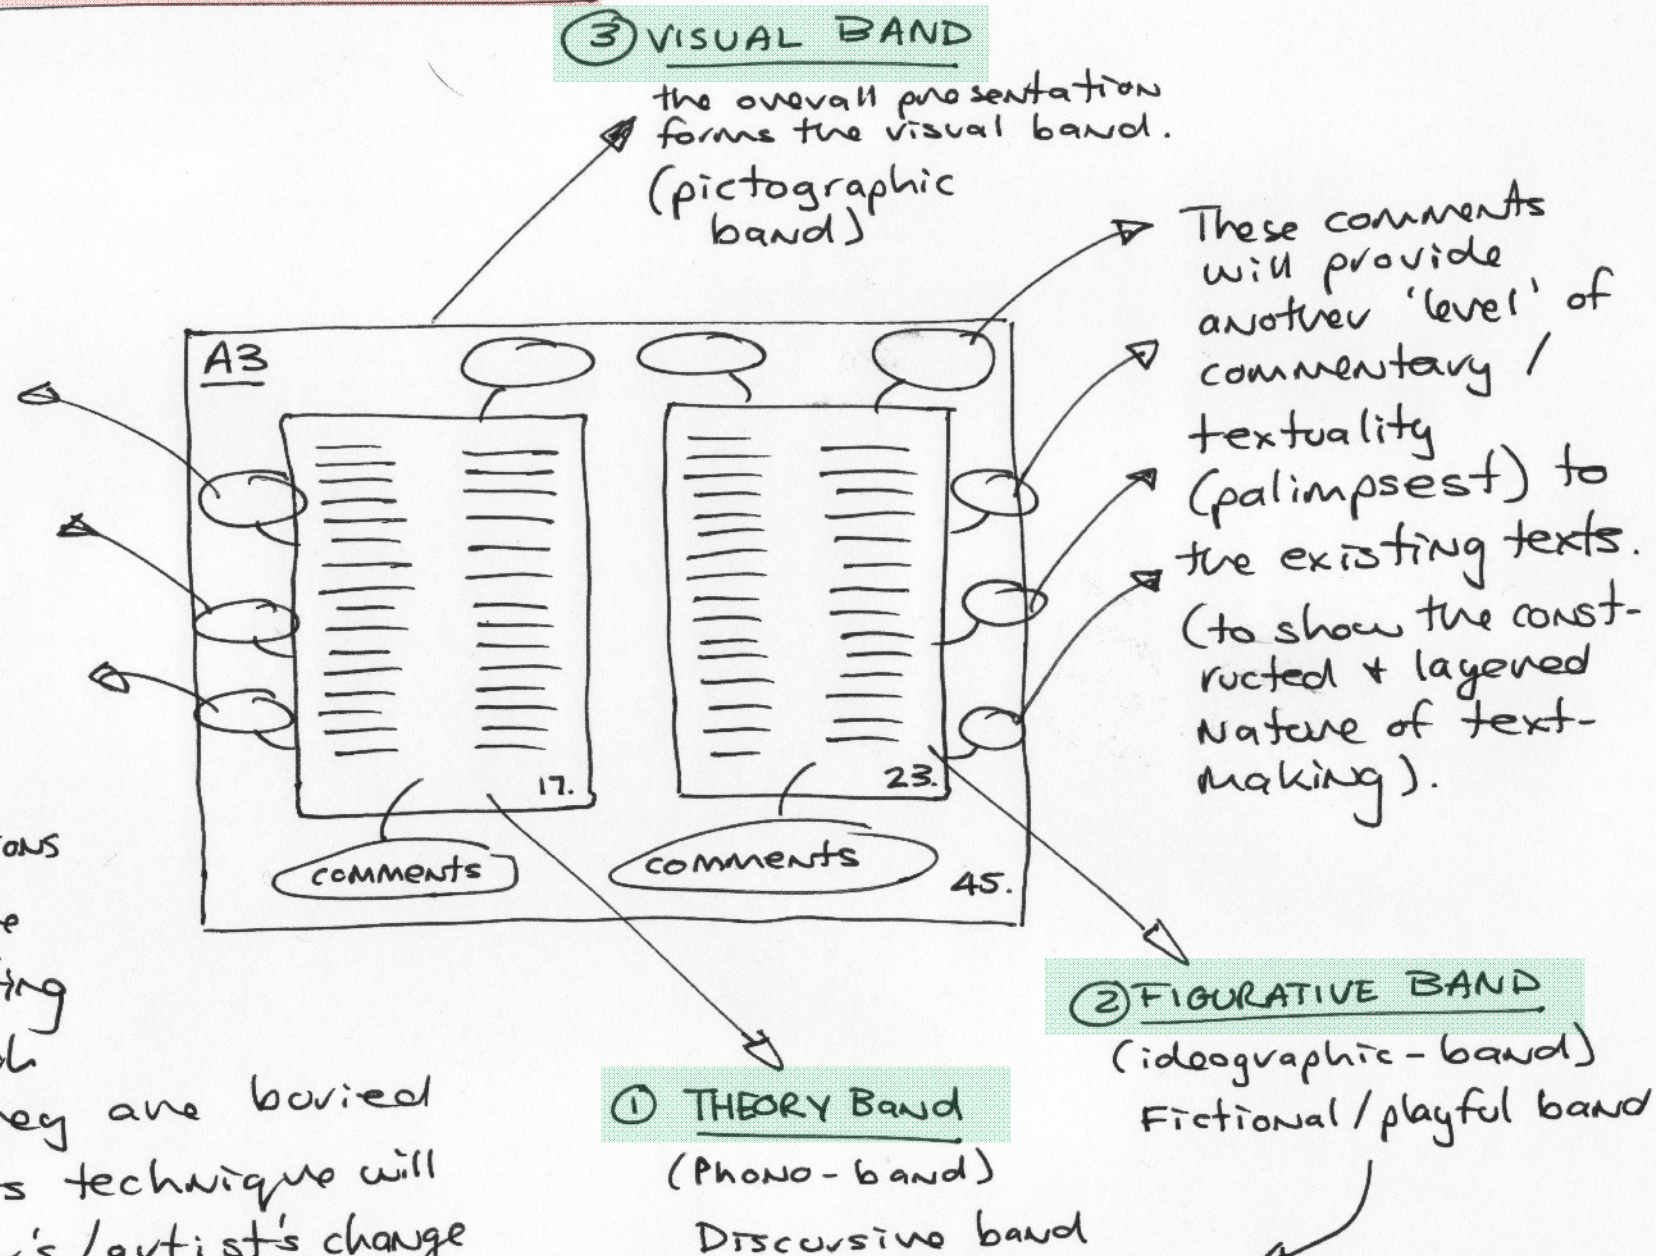 ③ VISUAL BAND
the overall presentation
forms the visual band.
(pictographic
band)
These comments
will provide
another 'level' of
commentary /
textuality
(palimpsest) to
the existing texts.
(to show the const-
ructed + layered
Nature of text-
making).
A3
17.
23.
comments
comments
45.
② FIGURATIVE BAND
(ideographic-band)
Fictional/playful band
① THEORY Band
(Phono-band)
Discursive band
are buried
technique will
/artist's change